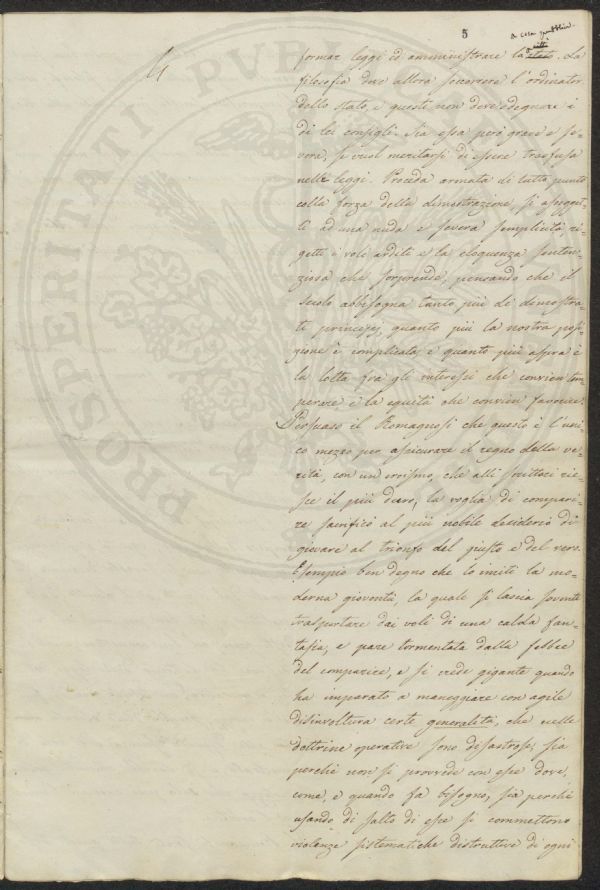 5
a cosa pubblica.
4
formar leggi ed amministrare la stato. La
filosofia deve allora soccorrere l'ordinator
dello stato, e questi non deve sdegnare i
di lei consigli. Sia essa però grave e se-
vera, se vuol meritarsi di essere trasfusa
nelle leggi. Proceda armata di tutto punto
colla forza della dimostrazione, si assogget-
ti ad una nuda e severa semplicità, ri-
getti i voli arditi e la eloquenza senten-
ziosa che sorprende, pensando che il
secolo abbisogna tanto più di dimostra-
ti principj, quanto più la nostra posi-
zione è complicata, e quanto più aspra è
la lotta fra gli interessi che convien tem
perare e la equità che convien favorire.
Persuaso il Romagnosi che questo è l'uni-
co mezzo per assicurare il regno della ve-
rità, con un eroismo, che alli scrittori rie-
sce il più duro, la voglia di compari-
re sacrificò al più nobile desiderio di
giovare al trionfo del giusto e del vero.
Esempio ben degno che lo imiti la mo-
derna gioventù, la quale si lascia sovente
trasportare dai voli di una calda fan-
tasia, e pare tormentata dalla febbre
del comparire, e si crede gigante quando
ha imparato a maneggiare con agile
disinvoltura certe generalità, che nelle
dottrine operative sono disastrose, sia
perchè non si provvede con esse dove,
come, e quando fa bisogno, sia perchè
usando di salto di esse si commettono
violenze sistematiche distruttive di ogni
PROSPERITATI PVBL